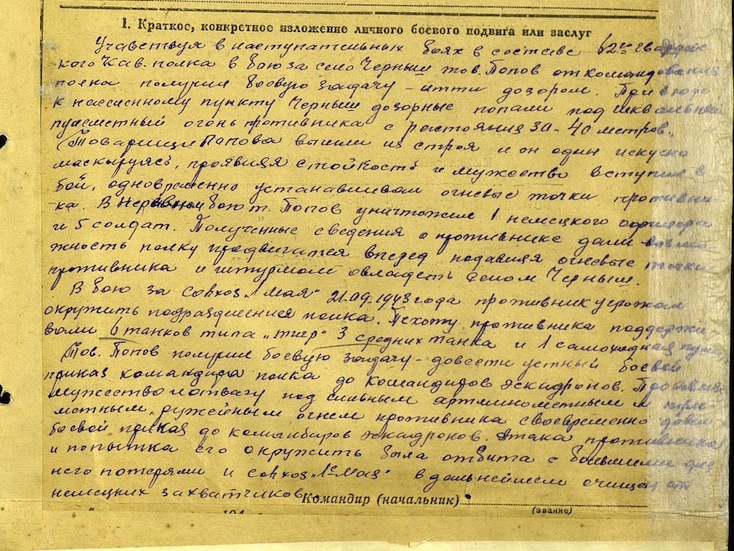 I. Краткое, конкретное изложение личного боевого подвига или заслуг
Учавствуя в наступательных боях в составе 62го гвардейс
кого Кав. полка в бою за село Черныш тов. Попов от командования
полка получил боевую задачу - итти дозором. При входе
к населенному пункту Черныш дозорные попали под шквальный
пулеметный огонь противника с растояния 30-40 метров.
Товарищи Попова вышли из строя и он один искусно
маскируясь, проявляя стойкость и мужество вступил в
бой, одновременно устанавливая огневые точки противни
ка. В неравном бою т. Попов уничтожил 1 немецкого офицера
и 5 солдат. Полученные сведения о противнике дали возмо
жность полку продвигатся вперед подавляя огневые точки
противника и штурмом овладеть селом Черныш.
В бою за совхоз "1 мая" 21.09.1943 года противник угрожал
окружить подразделения полка. Пехоту противника поддержи
вали 6 танков типа "тигр" 3 средних танка и 1 самоходная
Тов. Попов получил боевую задачу - довести устный боевой
приказ командира полка до командиров эскадронов. Проявляя
мужество и отвагу под сильным артминометным и пуле
метным, ружейным огнем противника своевременно довел
боевой приказ до командиров эскадронов. Атака противника
и попытка его окружить была отбита с большими для
него потерями и совхоз "1е Мая" в дальнейшем очищен от
немецких захватчиков.
Командир (начальник)
(звание)